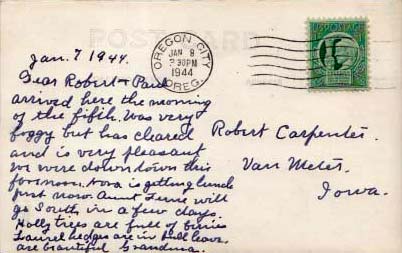 POST CARD
OREGON CITY
JAN 8
3 30 PM
1944
OREG.
Jan. 7 1944.
Dear Robert + Paul
arrived here the morning
of the fifth. Was very
foggy but has cleared
and is very pleasant
we were down town this
forenoon. Nora is getting lunch
just now. Aunt will
go South in a few days.
Holly trees are full of berries
Laurel hedges are in full leaves
are beautiful Grandma.
Robert Carpenter.
Van Meter.
Iowa.